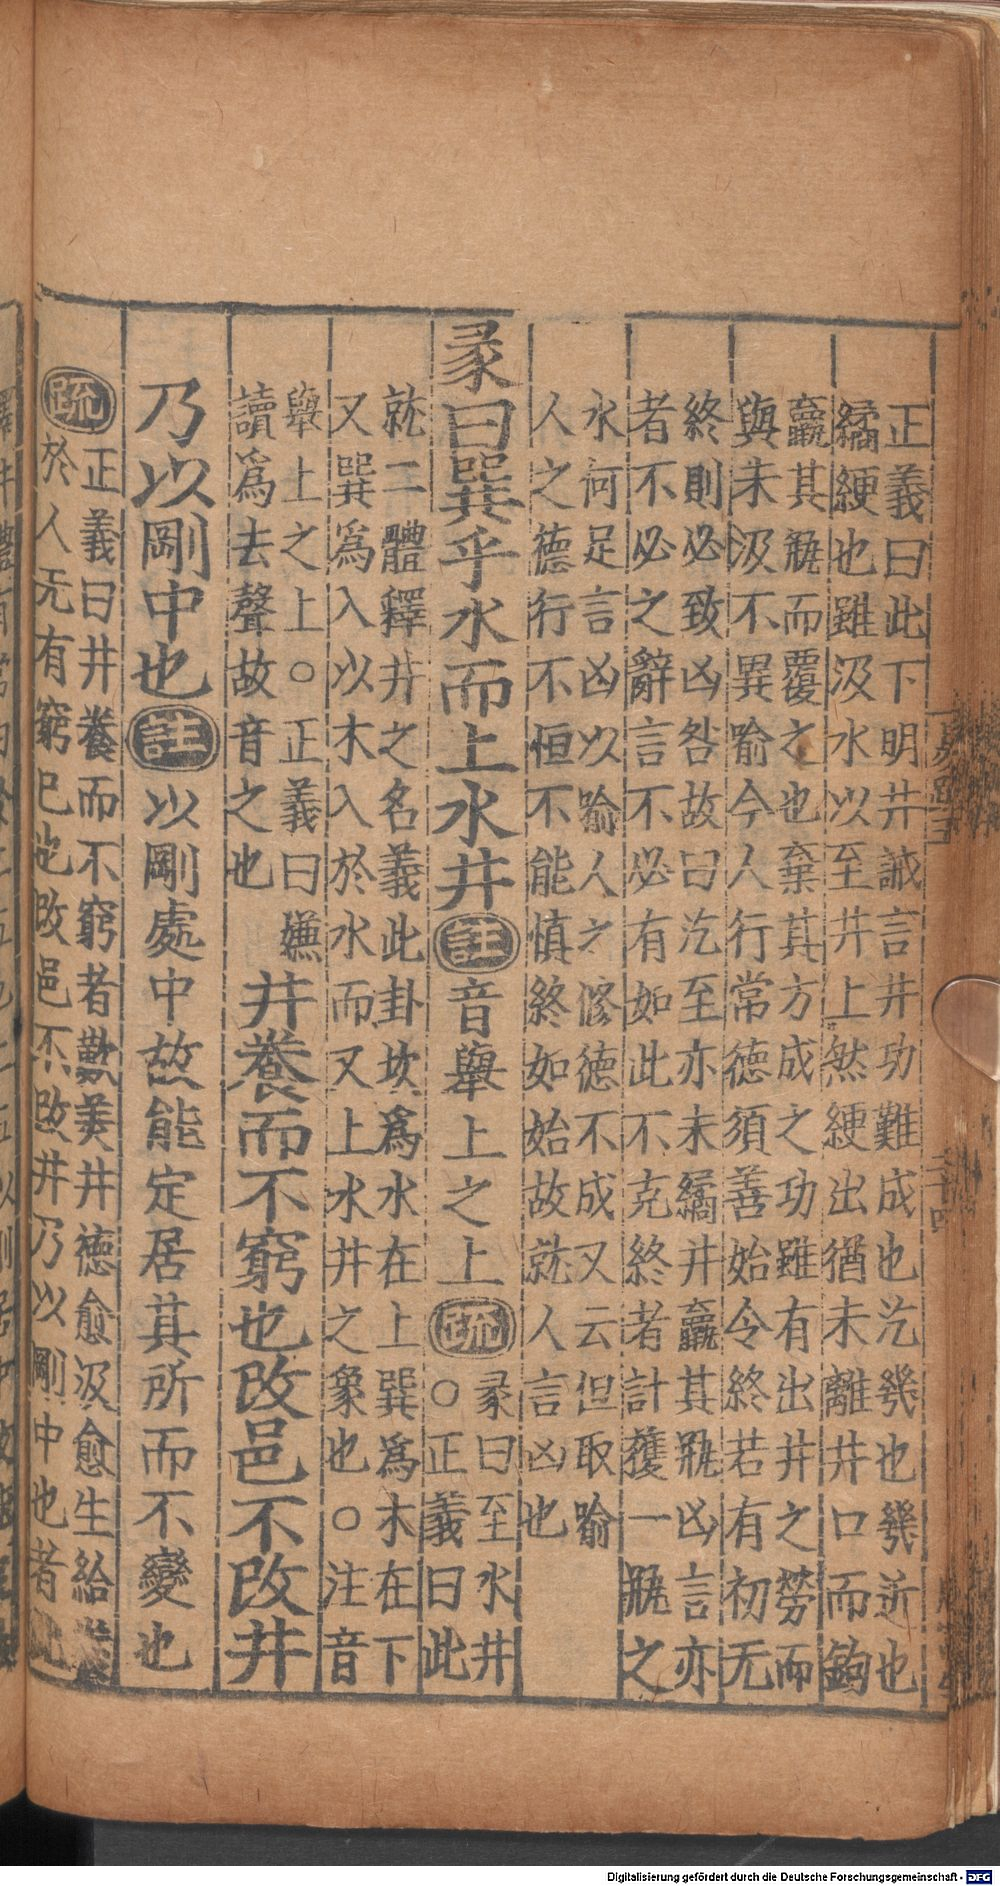 正義曰此下明井誡言井功難成也汔幾也幾近也
繘綆也雖汲水以至井上然綆出猶未離井口而鉤
羸其瓶而覆之也棄其方成之功雖有出井之勞而
與未汲不異喻今人行常德須善始令終若有初无
終則必致凶咎故曰汔至亦未繘井羸其瓶凶言亦
者不必之辭言不必有如此不克終者計獲一瓶之
水何足言凶以喻人之修德不成又云但取喻
人之德行不恒不能慎終如始故就人言凶也
彖曰巽乎水而上水井
註
音舉上之上
疏
彖曰至水井
○正義曰此
就二體釋井之名義此卦坎爲水在上巽爲木在下
又巽爲入以木入於水而又上水井之象也○注音
舉上之上○正義曰嫌
讀爲去聲故音之也
井養而不窮也改邑不改井
乃以剛中也
註
以剛處中故能定居其所而不變也
疏
正義曰井養而不窮者歎美井德愈汲愈生給養
於人无有窮已也改邑不改井乃以剛中也者此